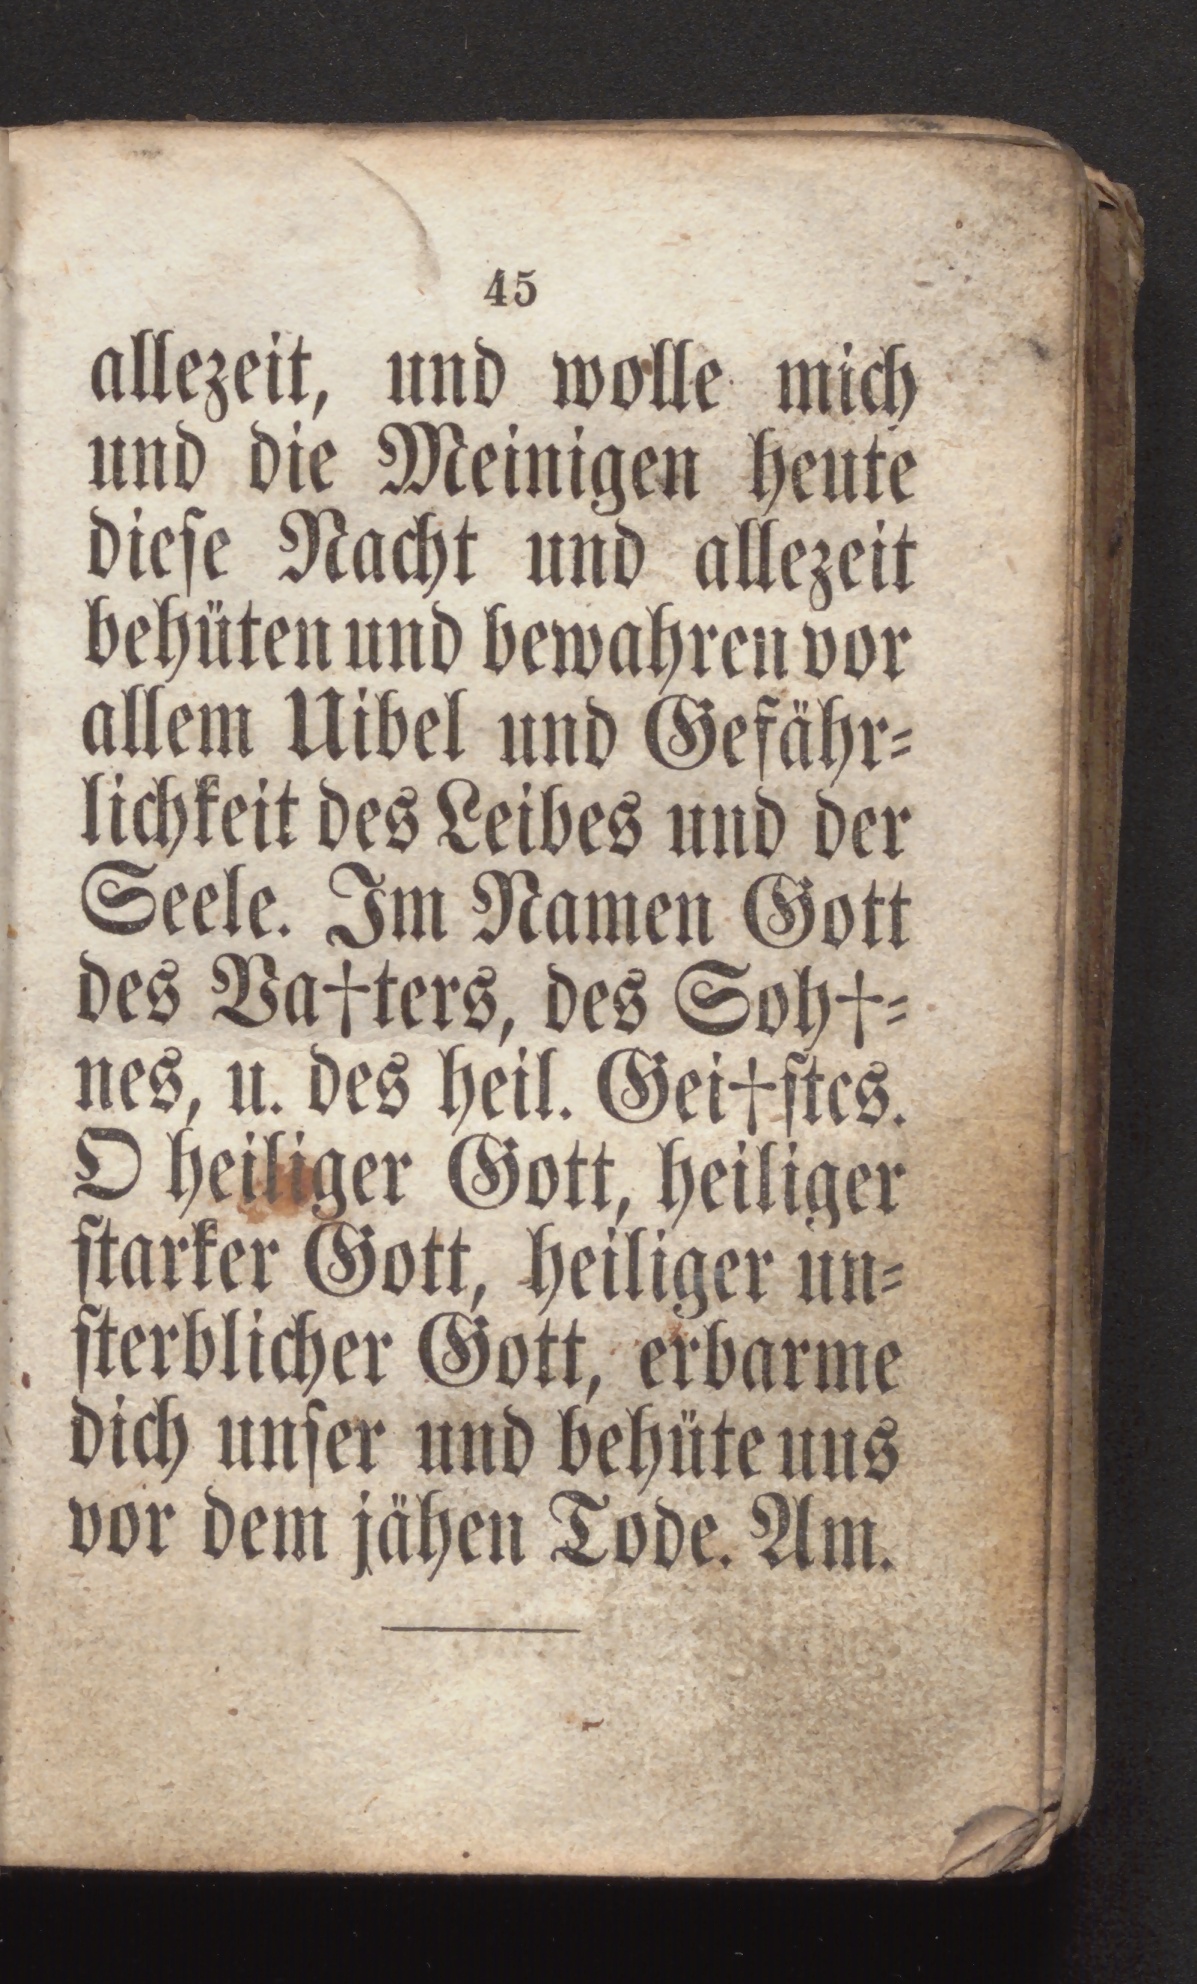 45
allezeit, und wolle mich
und die Meinigen heute
dieſe Nacht und allezeit
behüten und bewahren vor
allem Uibel und Gefähr⸗
lichkeit des Leibes und der
Seele. Im Namen Gott
des Va†ters, des Soh†⸗
nes, u. des heil. Gei†ſtes.
O heiliger Gott, heiliger
ſtarker Gott, heiliger un⸗
ſterblicher Gott, erbarme
dich unſer und behüte uns
vor dem jähen Tode. Am.